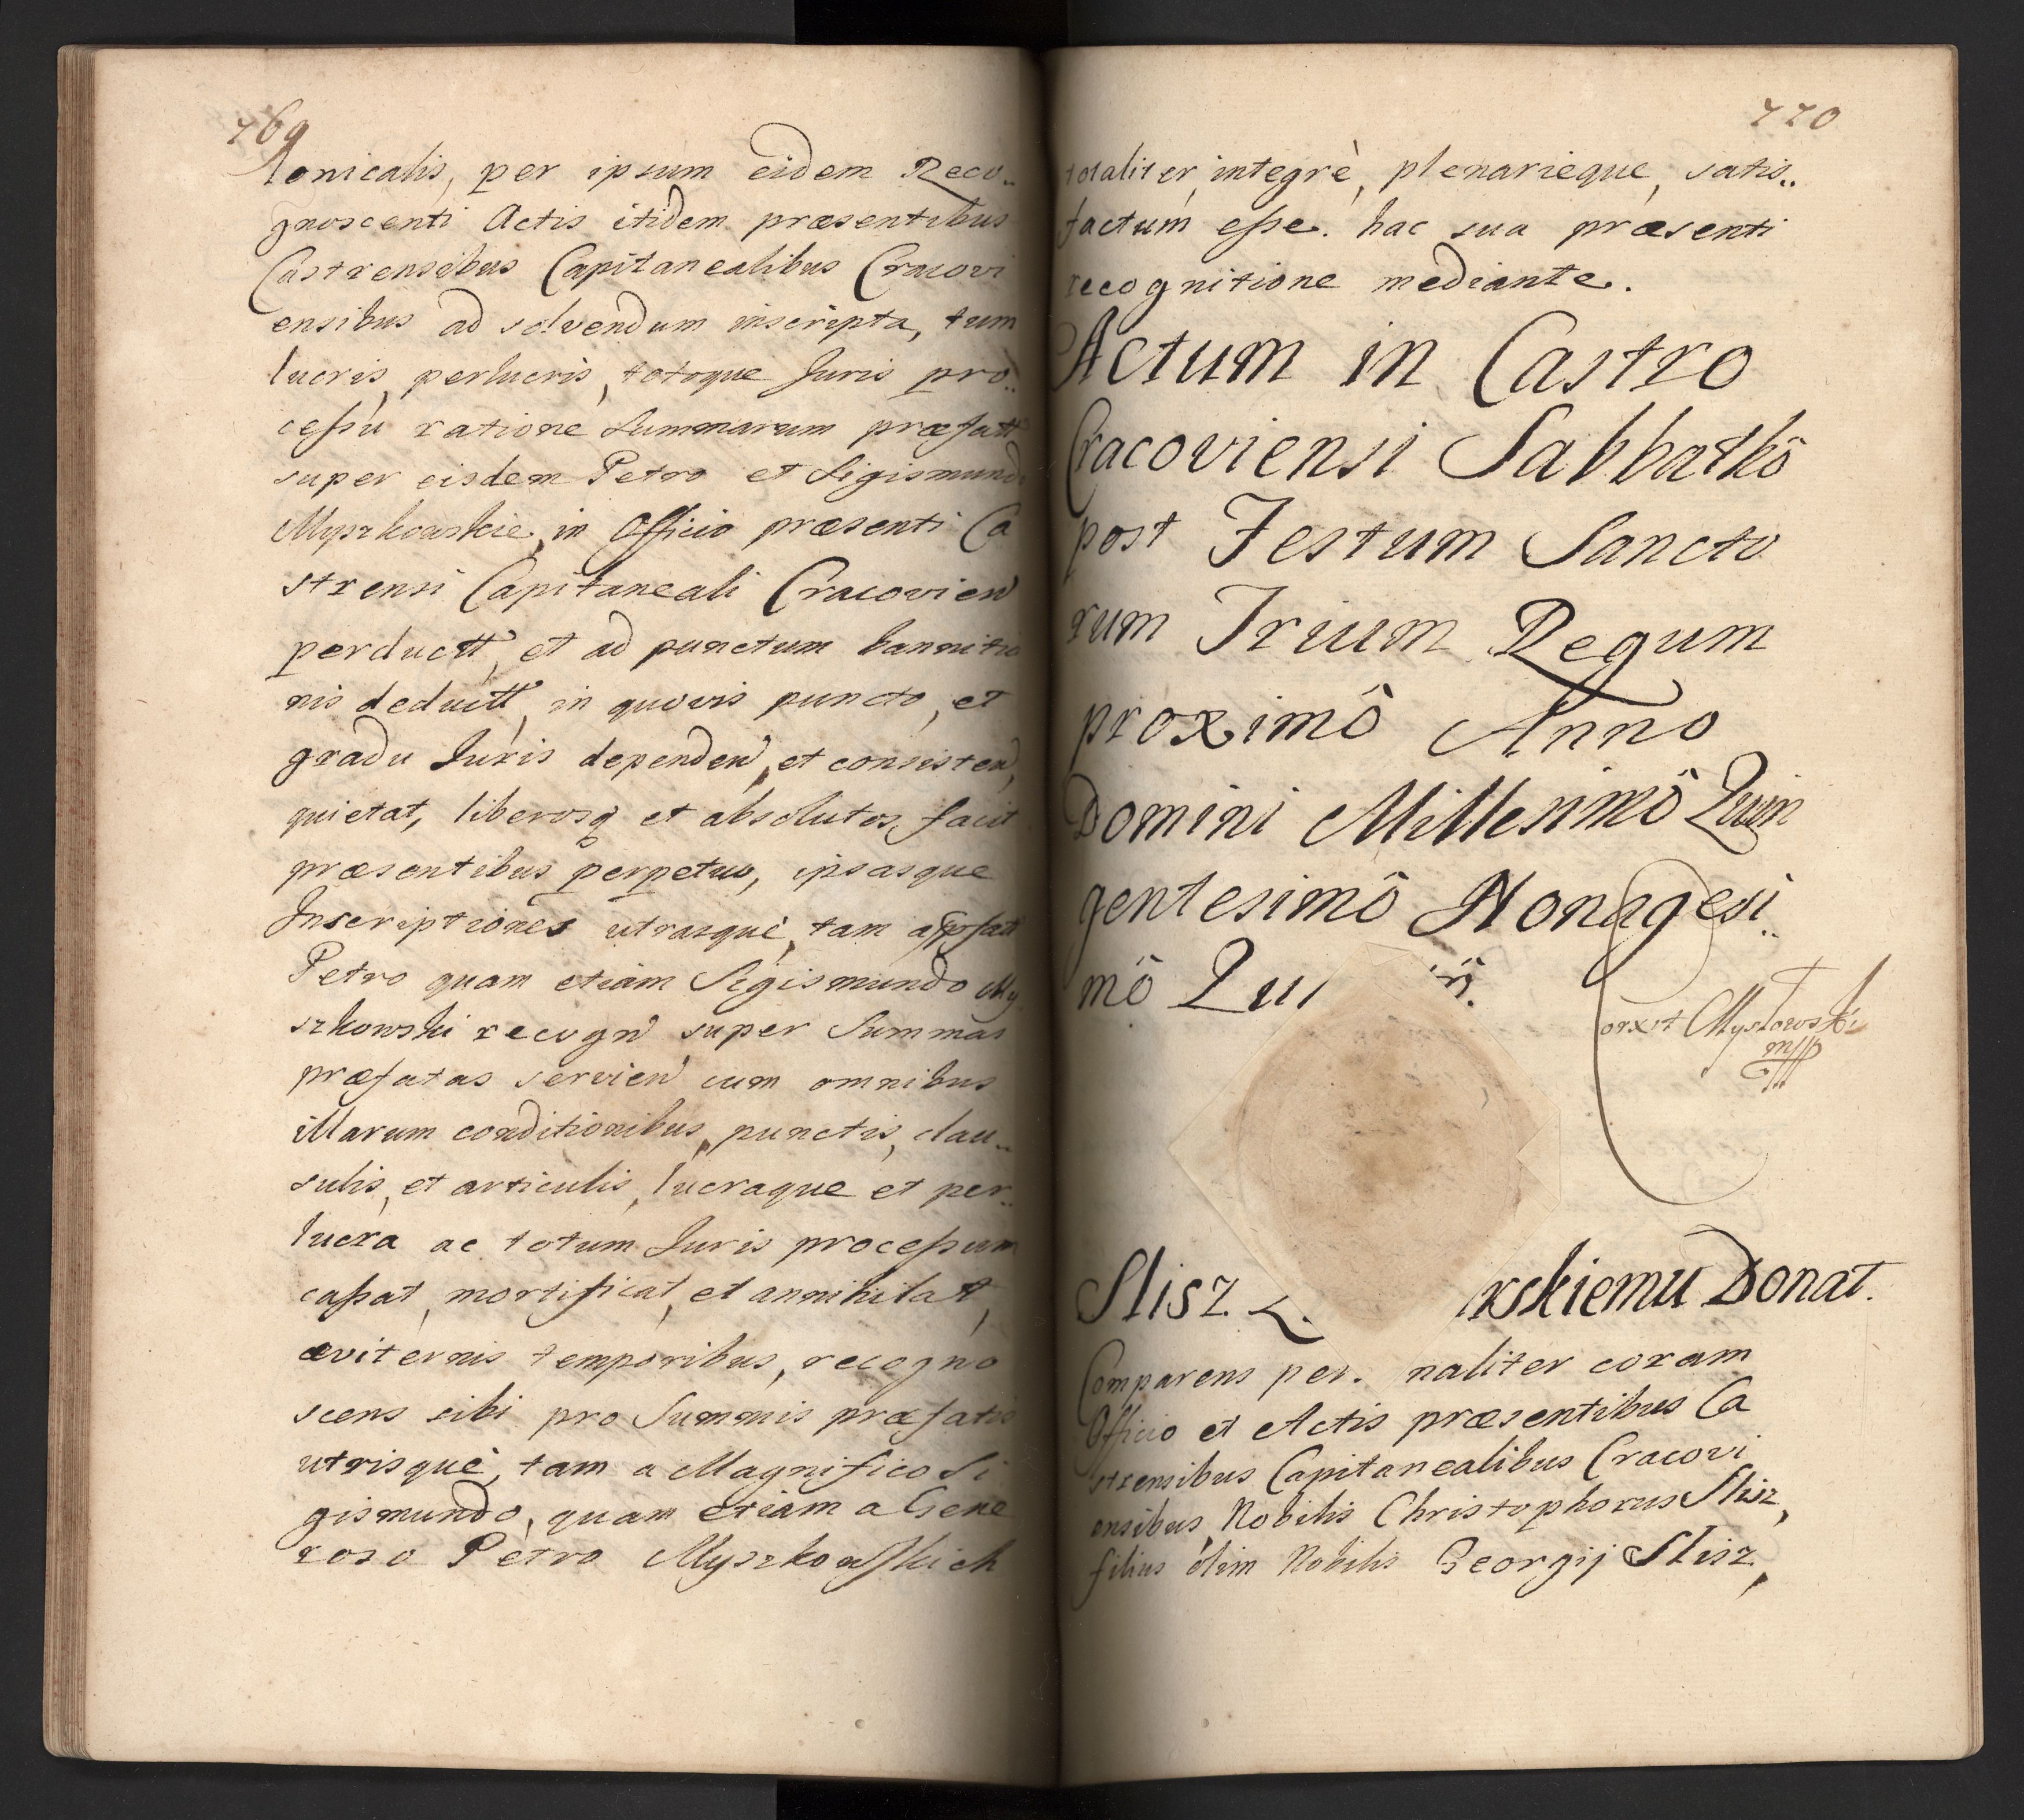 769
lonicalis, per ipsum eidem Reco..
gnoscenti Actis itidem præsentibus
Castrensibus Capitanealibus Cracovi
ensibus ad solvendum inscripta, tum
lucris, perlucris, totoque Juris pro..
cessu ratione Summarum præfatt
super eisdem Petro et Sigismundo
Myszkowskie, in Officio præsenti Ca
strensi Capitaneali Cracovien
perductt, et ad punctum bannitio
nis deductt, in quovis puncto, et
gradu Juris dependen, et consisten,
quietat, liberosq et absolutos facit
præsentibus perpetuo, ipsasque
Inscriptiones utrasquè, tam
Petro quam etiam Sigismundo My
szkowski recogn super Summas
præfatas servien cum omnibus
illarum conditionibus, punctis, clau..
sulis, et articulis, lucraque et per..
lucra ac totum Juris processum
cassat, mortificat, et annihilat,
æviternis temporibus, recogno
scens sibi pro Summis præfatis
utrisquè, tam a Magnifico Si
gismundo, quam etiam a Gene
roso Petro Myszkowskich
770
totaliter, integrè, plenarieque, satis..
factum esse. hac sua præsenti
recognitione mediante.
Actum in Castro
Cracoviensi Sabbathô
post Festum Sancto
rum Trium Regum
proximô Anno
Domini Millesimô Quin
gentesimô Nonagesi..
mô
Slisz rskiemu Donat.
Comparens per naliter coram
Officio et Actis præsentibus Ca
strensibus Capitanealibus Cracovi
ensibus, Nobilis Christophorus Slisz,
filius olim Nobilis Georgij Slisz,